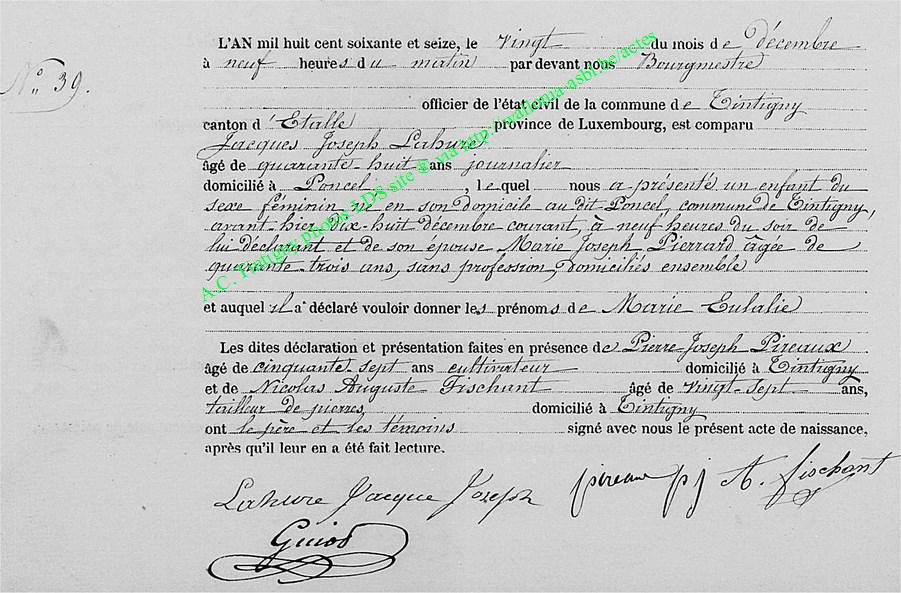 N° 39.
L'AN mil huit cent soixante et seize, le vingt du mois de décembre
à neuf heures du matin par devant nous Bourgmestre
officier de l'état civil de la commune de Tintigny
canton d'Etalle province de Luxembourg, est comparu
Jacques Joseph Lahure
âgé de quarante-huit ans journalier
domicilié à Poncel, lequel nous a présenté un enfant du
sexe féminin né en son domicile au dit Poncel, commune de Tintigny,
avant-hier dix-huit décembre courant, à neuf heures du soir de
lui déclarant et de son épouse Marie Joseph Pierrard âgée de
quarante-trois ans, sans profession, domiciliés ensemble
et auquel il a déclaré vouloir donner les prénoms de Marie Eulalie
Les dites déclaration et présentation faites en présence de Pierre-Joseph Pireaux
âgé de cinquante-sept ans cultivateur domicilié à Tintigny
et de Nicolas Auguste Fischant âgé de vingt-sept ans,
tailleur de pierres, domicilié à Tintigny
ont le père et les témoins signé avec nous le présent acte de naissance,
après qu'il leur en a été fait lecture.
Lahure Jacque Joseph pireaux pj A. fischant
Guiot
A.C. Tintigny photos LDS site © via http://wallonia-asbl.be/actes